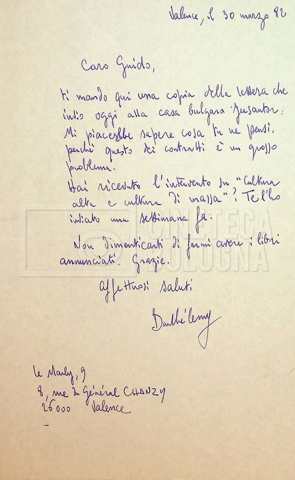 Valence, il 30 marzo 82
Caro Guido,
ti mando qui una copia della lettera che
invio oggi alla casa bulgara Jusautor.
Mi piacerebbe sapere cosa tu ne pensi,
perché questo dei contratti è un grosso
problema.
Hai ricevuto l'intervento su "Cultura
alta e cultura di massa"? Te l'ho
inviato una settimana fa.
Non dimenticarti di farmi avere i libri
annunciati. Grazie.
affettuosi saluti
Barthélemy
Le Marly, 9
8, rue du Général CHANZY
26000 Valence